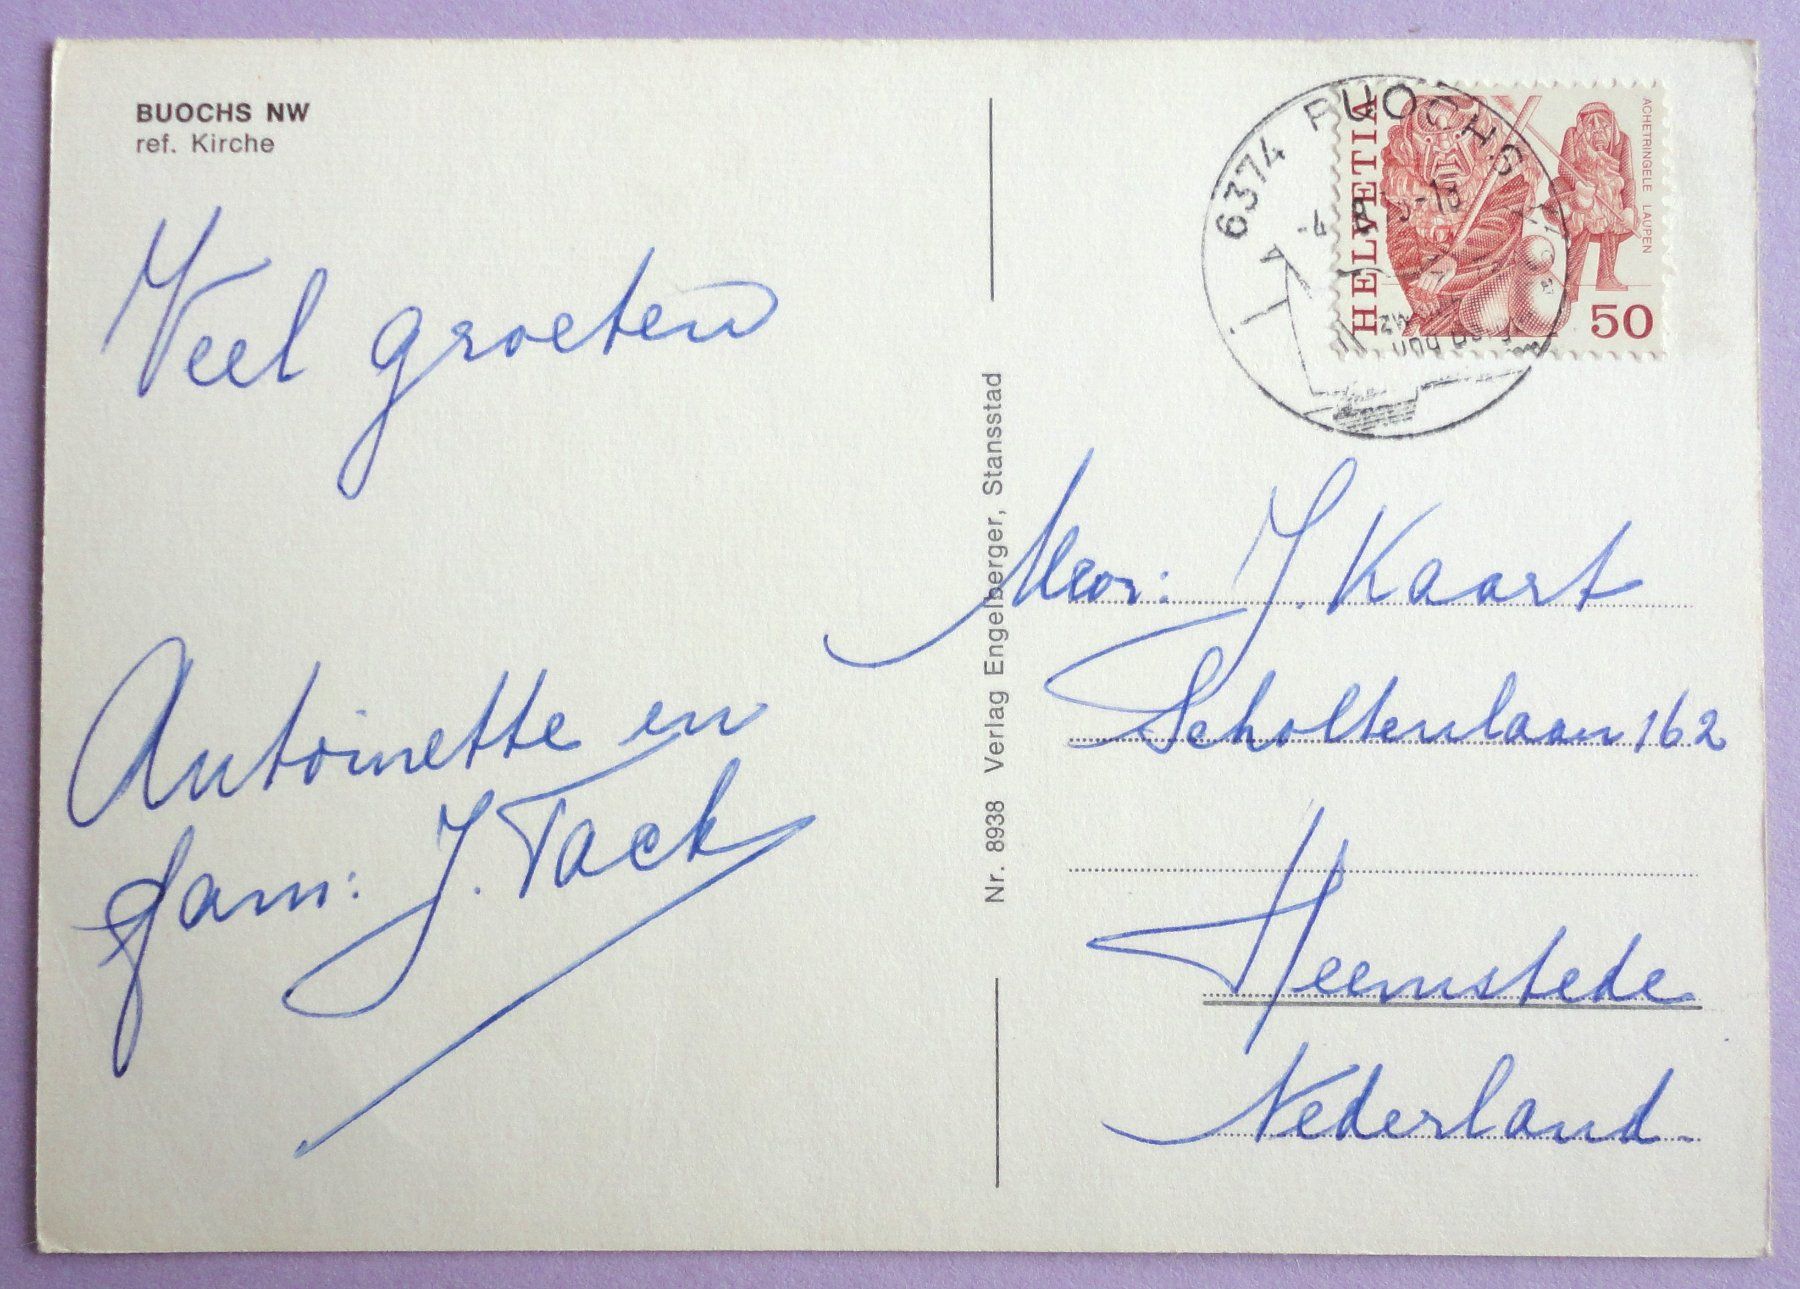 BUOCHS NW
ref. Kirche
Veel groeten
Antoinette en
fam: J. Tack
Nr. 8938 Verlag Engelberger, Stansstad
6374 BUOCHS
HELVETIA
ACHETRINGELE LAUPEN
50
Mevr: J. Kaart
Scholtenlaan 162
Heemstede
Nederland.